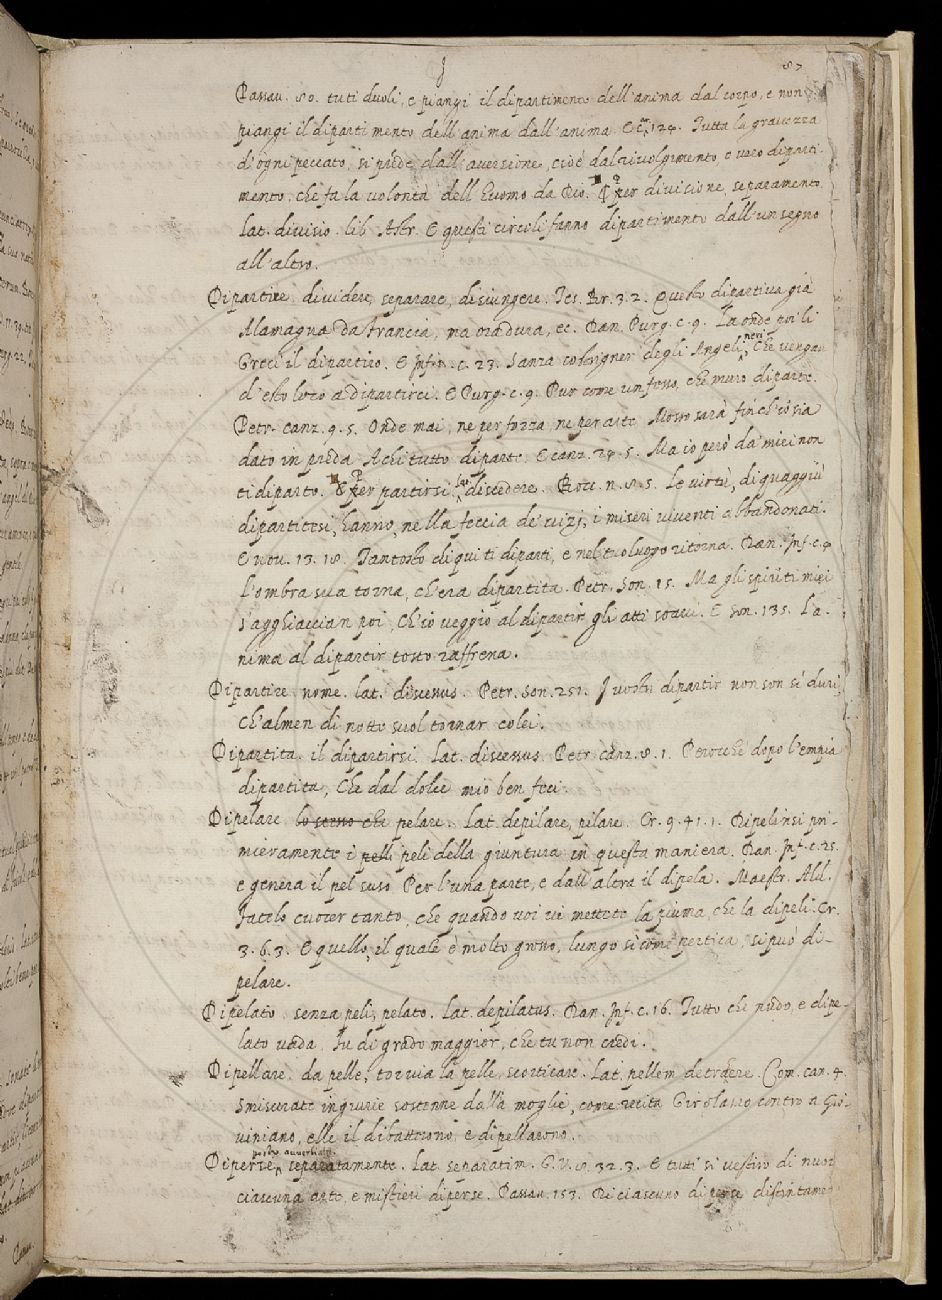 87
Passau. 80. tu ti duoli, e piangi il dipartimento dell'anima dal corpo, e non
piangi il dipartimento dell'anima dall'anima. E c. 124. Tutta la gravezza
d'ogni peccato, si prende dall'aversione, cioè dal rivolgimento, e vero diparti
mento, che fa la volontà dell'huomo da Dio. § per divisione, separamento.
lat. divisio. lib. Astr. E questi circoli fanno dipartimento dall'un segno
all'altro.
Dipartire. dividere, separare, disiungere. Tes. Br. 3. 2. Questo dipartiva già
Alamagna da Francia, ma ora dura, ec. Dan. Purg. c. 9. Là onde poi li
Greci il dipartiro. E Inf. c. 23. Sanza costrigner degli Angeli neri, Che vengan
d'esto loco a dipartirci. E Purg. c. 9. Pur come un fesso, che muro diparte.
Petr. canz. 9. 5. Onde mai, ne per forza, ne per arte Mosso sarà fin ch'io sia
dato in preda A chi tutto diparte. E canz. 24. 5. Ma io però da miei non
ti diparto. § E per partirsi lat. discedere. Bocc. n. 8. 5. Le virtù, di quaggiù
dipartitesi, hanno, nella feccia de' vizj, i miseri viventi abbandonati.
E nov. 13. 18. Tantosto di qui ti diparti, e nel tuo luogo ritorna. Dan. Inf. c. 4
L'ombra sua torna, ch'era dipartita. Petr. Son. 15. Ma gli spiriti miei
s'agghiaccian poi, Ch'io veggio al dipartir gli atti soavi. E son. 135. L'a-
nima al dipartir tosto raffrena.
Dipartire nome. lat. discessus. Petr. Son. 251. I vostri dipartir non son sì duri,
Ch'almen di notte suol tornar colei.
Dipartita. il dipartirsi. Lat. discessus. Petr. canz. 8. 1. Perocchè dopo l'empia
dipartita, Che dal dolce mio ben feci.
Dipelare lo stesso che pelare. Lat. depilare, pilare. Cr. 9. 41. 1. Dipelinsi pri-
mieramente i pelli peli della giuntura in questa maniera. Dan. Inf. c. 25.
e genera il pel suso Per l'una parte, e dall'altra il dipela. Maestr. Ald.
Fatelo cuocer tanto, che quando voi vi mettete la piuma, che la dipeli. Cr.
3. 6. 3. E quello, il quale è molto grosso, lungo sì come pertica, si può di-
pelare.
Dipelato. senza peli, pelato. Lat. depilatus. Dan. Inf. c. 16. Tutto che nudo, e dipe-
lato vada, Fu di grado maggior, che tu non credi.
Dipellare. da pelle, tor via la pelle, scorticare. Lat. pellem detrahere. Com. can. 4.
Smisurate ingiurie sostenne dalla moglie, come recita Girolamo contro a Gio-
viniano, elle il dibatterono, e dipellarono.
Diperse, posto avverbialm. separatamente. Lat. separatim. G. V. 8. 32. 3. E tutti si vestiro di nuovo
ciascuna arte, e mistieri diperse. Passau. 153. Di ciascuno diperse distintamen